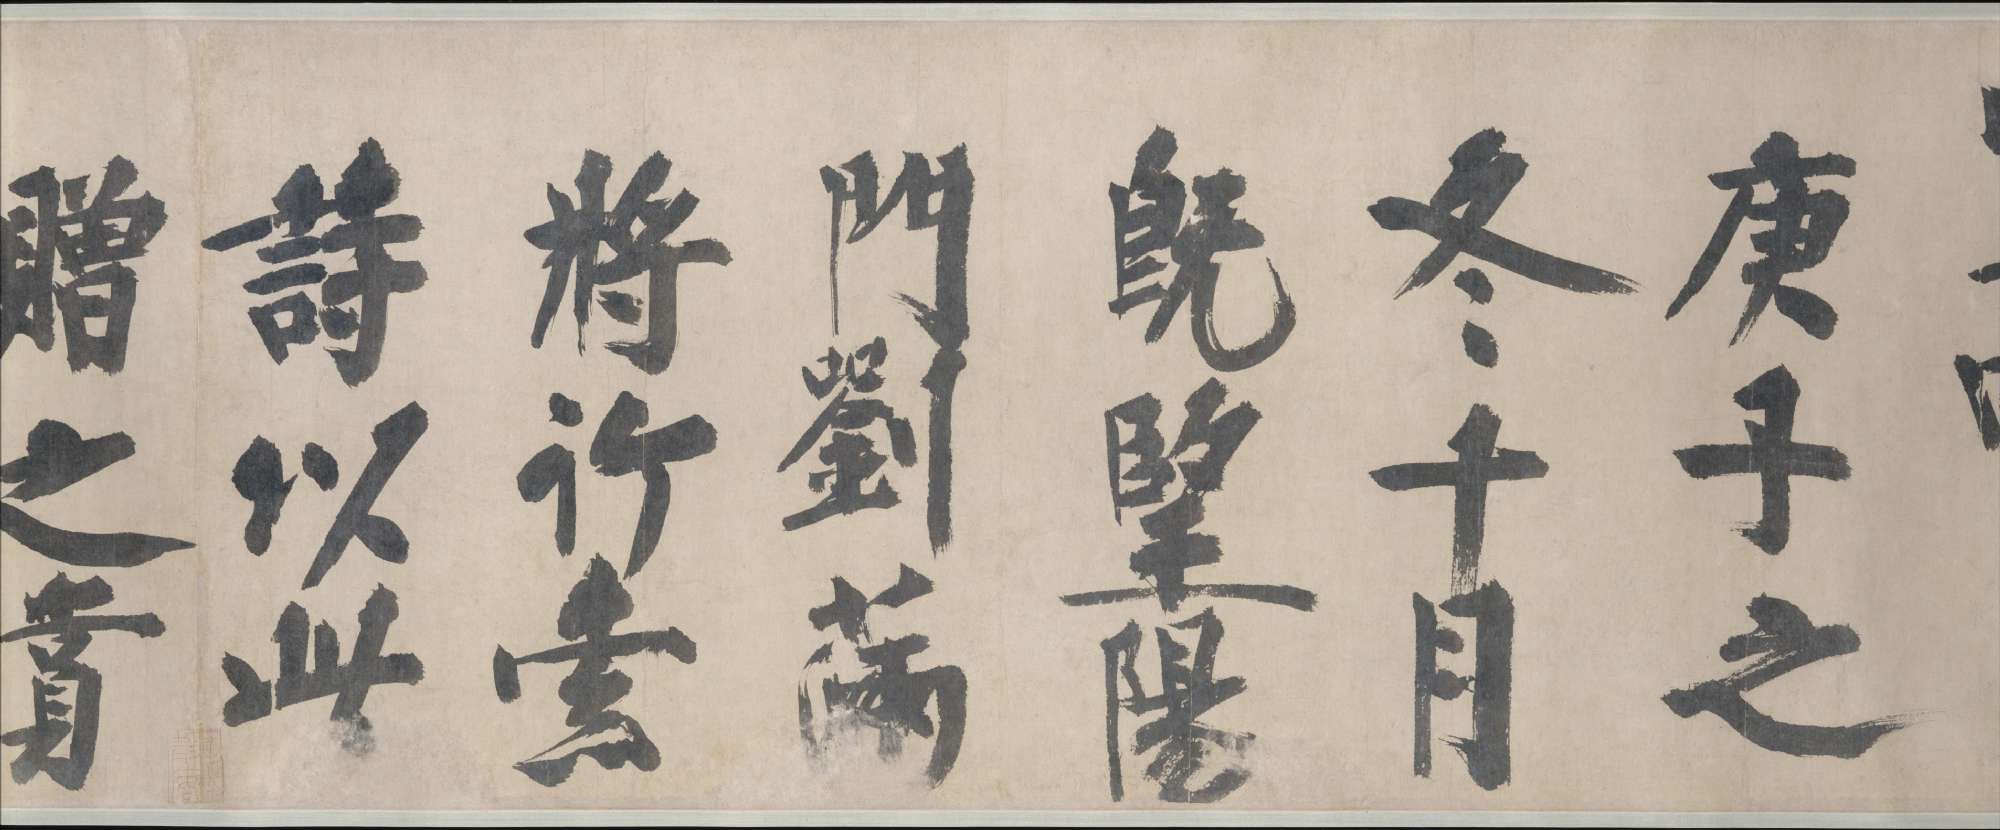 庚子之
冬十月
既朢陽
門劉滿
將行索
詩以此
贈之